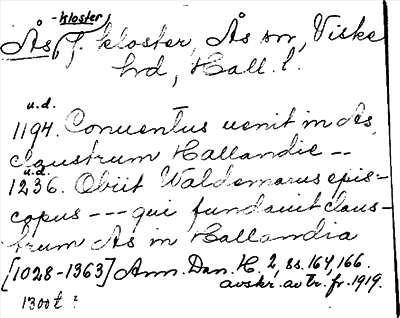 -kloster
Ås, f. kloster, Ås sn, Viske
hd, Hall. l.
u.d.
1194. Conuentus uenit in As,
claustrum Hallandie --
u.d.
1236. Obiit Waldemarus epis-
copus --- qui fundauit claus-
trum As in Hallandia
[1028-1363] Ann. Dan. H. 2, ss. 164, 166.
avskr. av tr. fr. 1919.
1300t?